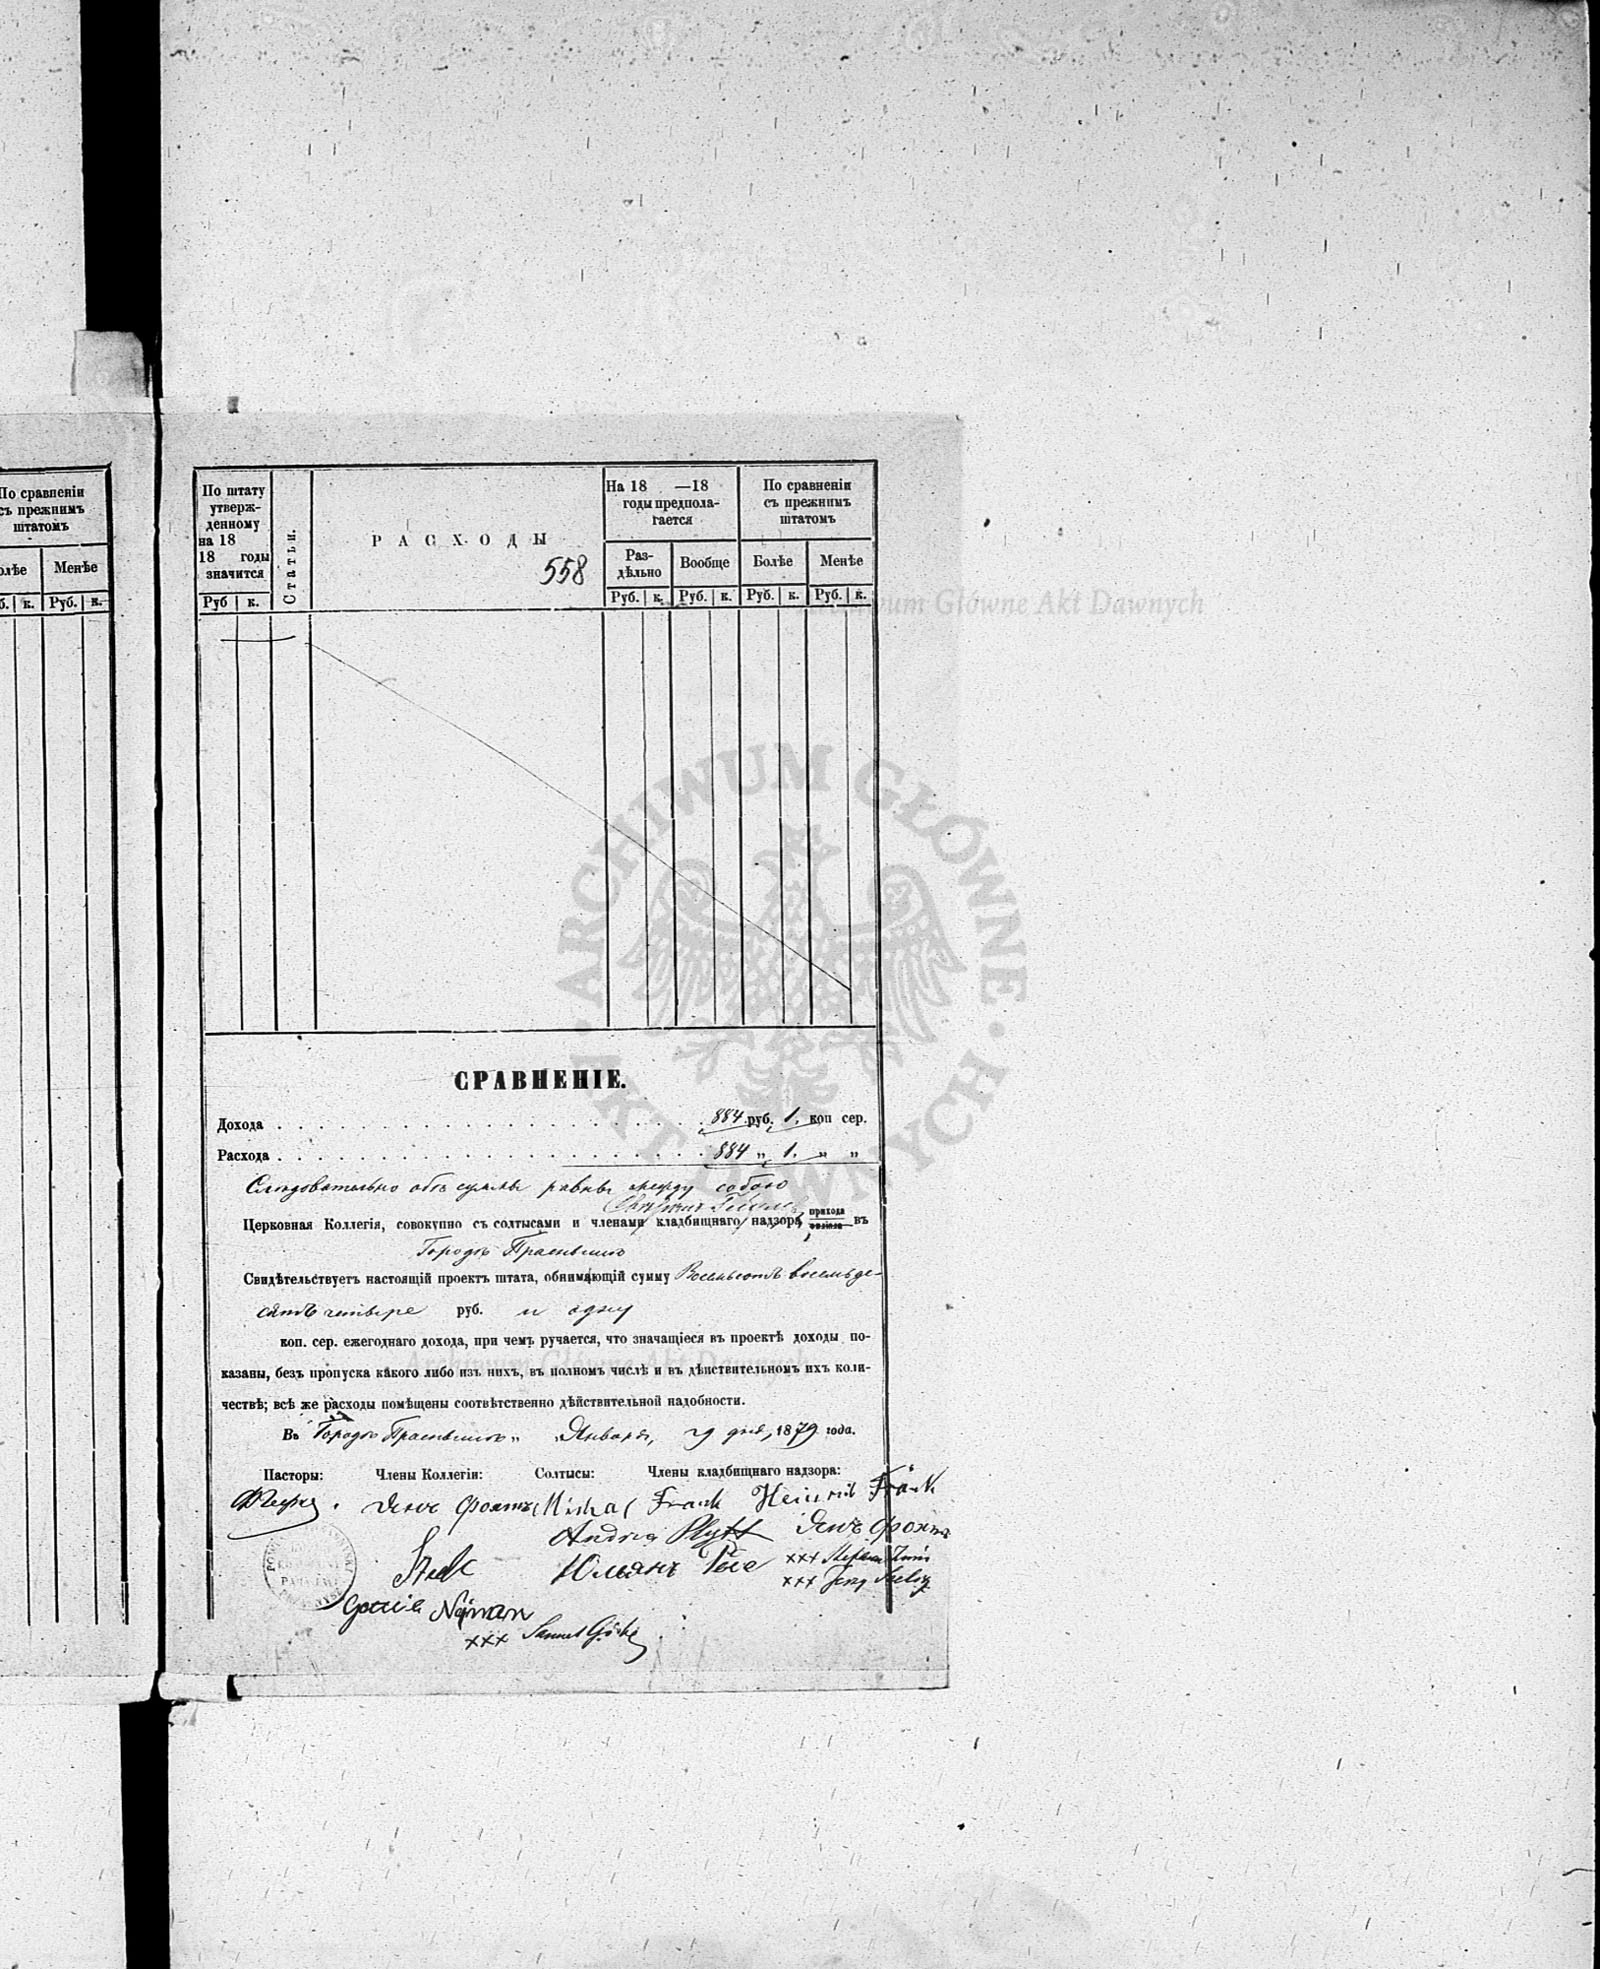 По сравненіи
съ прежнимъ
штатомъ
Менѣе
к. Руб. к.
По штату
утверж-
денному
на 18
18 годы
значится
Руб к.
Статьи.
РАСХОДЫ
558
На 18 —18
годы предпола-
гается
Раз-
дѣльно
Вообще
Руб. к. Руб. к.
По сравненіи
съ прежнимъ
штатомъ
Болѣе Менѣе
Руб. к. Руб. к.
Archiwum Główne Akt Dawnych
ARCHIWUM GŁÓWNE AKT DAWNYCH
СРАВНЕНІЕ.
Дохода 884 руб. 1. коп сер.
Расхода 884 „ 1. „ „
Слѣдовательно обѣ суммы равны между собою
Церковная Коллегія, совокупно съ солтысами и членами кладбищнаго надзора прихода филіала въ
Городѣ Праснышѣ
Свидѣтельствуетъ настоящій проектъ штата, обнимающій сумму Восемьсотъ восемьде-
сятъ четыре руб. и одну
коп. сер. ежегоднаго дохода, при чемъ ручается, что значащіеся въ проектѣ доходы по-
казаны, безъ пропуска какого либо изъ нихъ, въ полномъ числѣ и въ дѣйствительномъ ихъ коли-
чествѣ; всѣ же расходы помѣщены соотвѣтственно дѣйствительной надобности.
Archiwum Główne Akt Dawnych
Въ Городѣ Праснышѣ „ Января, 29 дня, 1879 года.
Пасторы: Члены Коллегіи: Солтысы: Члены кладбищнаго надзора:
Frank Heinrich Frank
Andrea
Юліанъ
xxx
xxx
Nejman
xxx Samuel